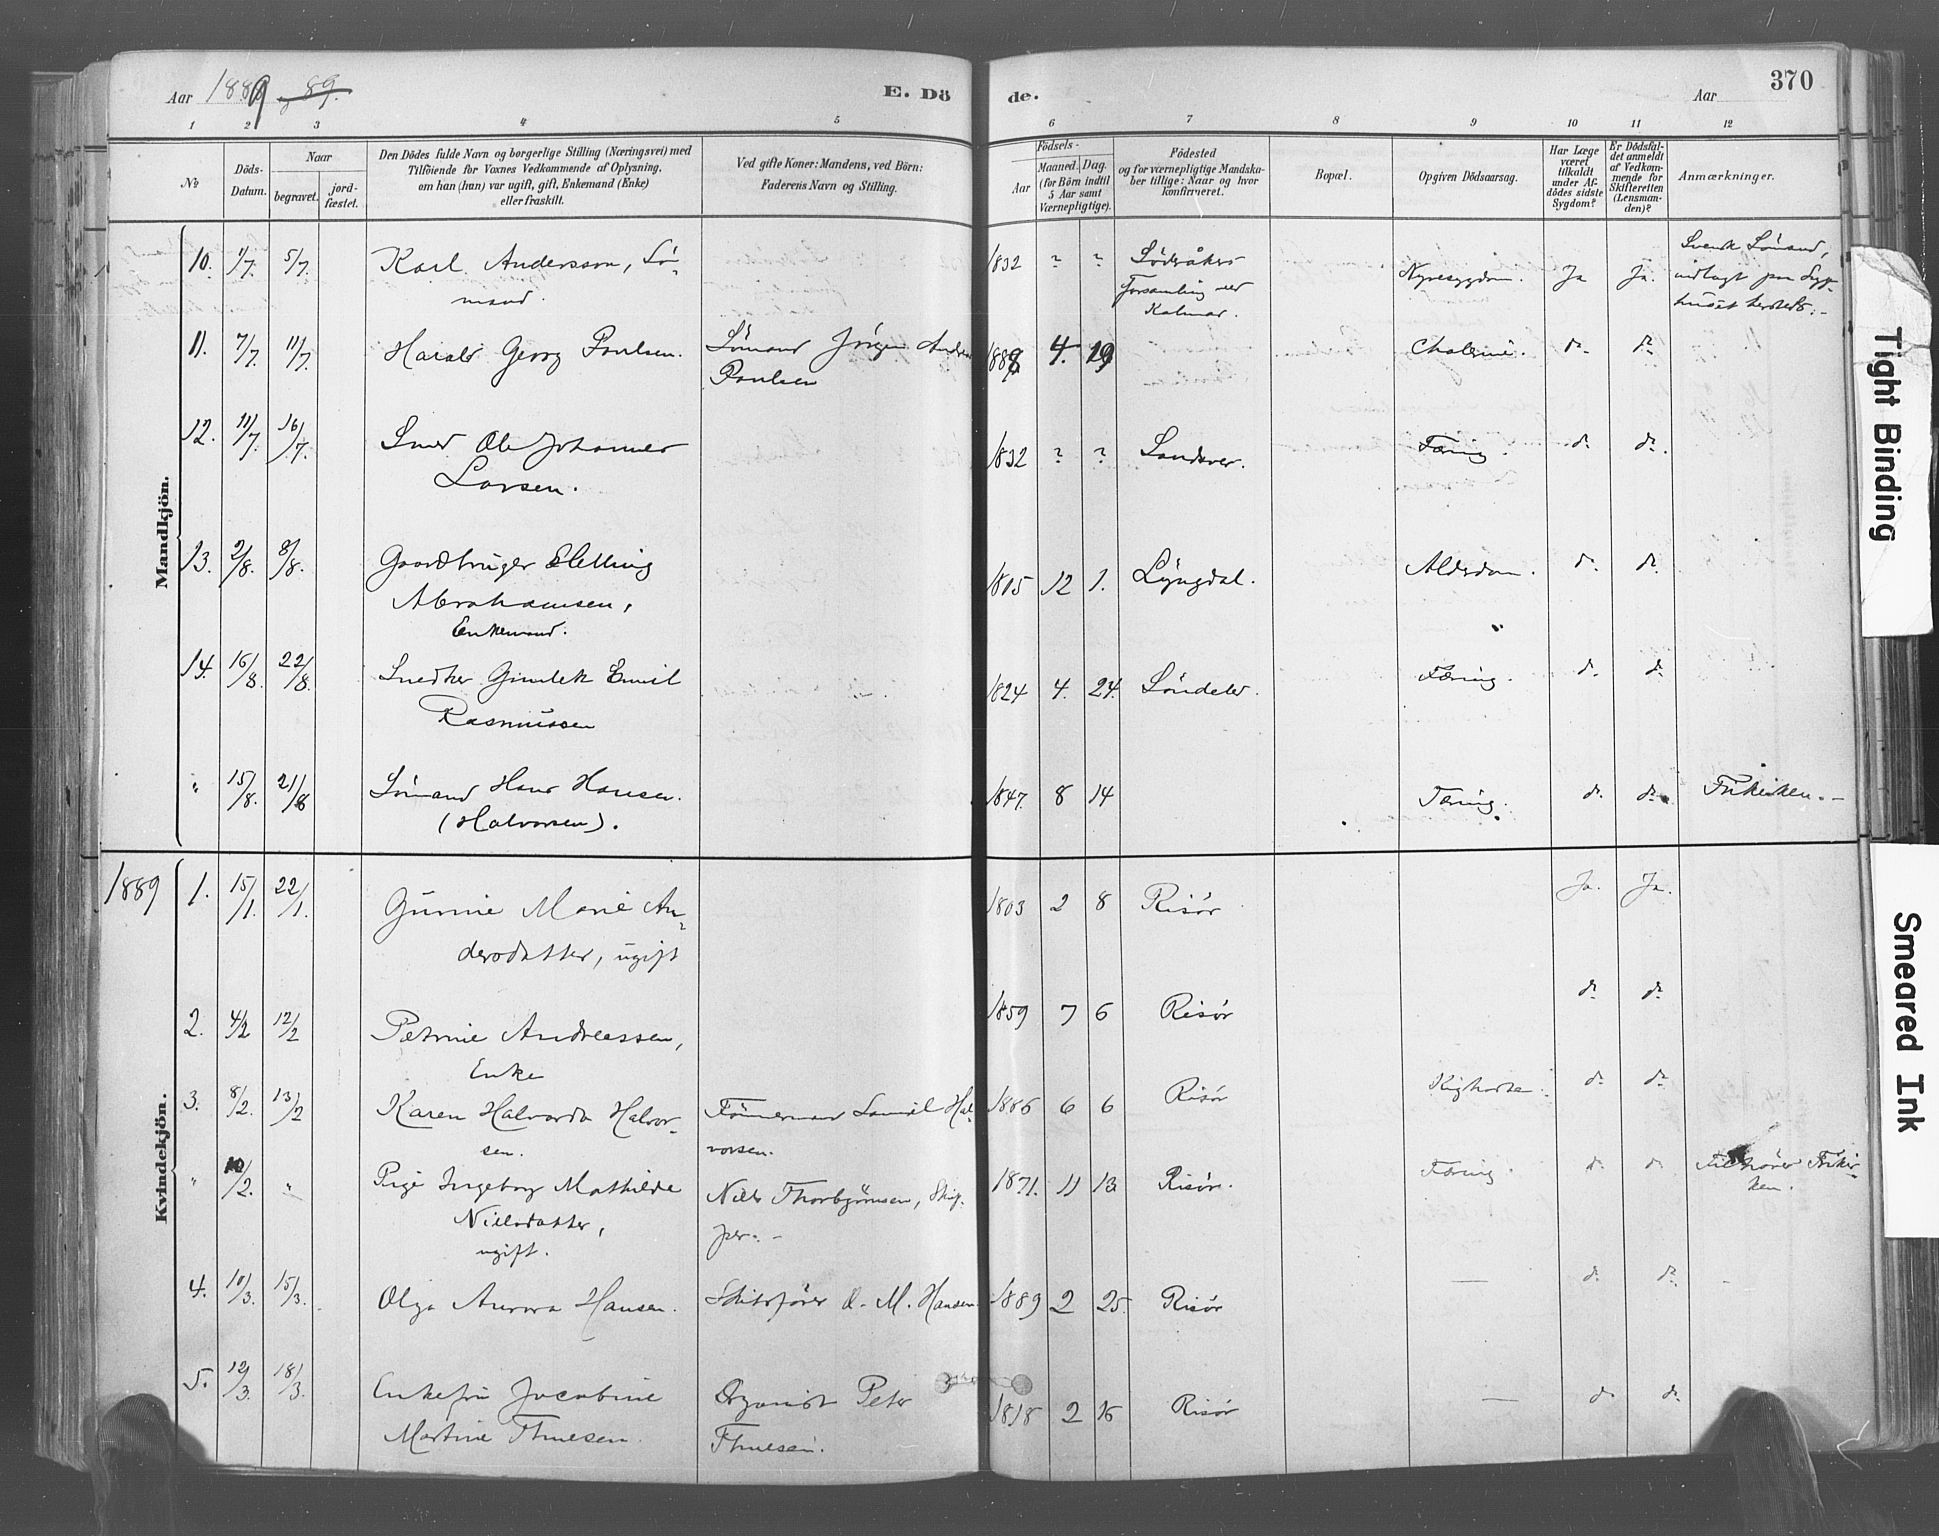 Aar 1889 89.
E. Dö
de.
Aar
370
1 2 3 4 5 6 7 8 9 10 11 12
No.
Döds-
Datum.
Naar
begravet.
jord-
fæstet.
Den Dödes fulde Navn og borgerlige Stilling (Næringsvei) med
Tilföiende for Voxnes Vedkommende af Oplysning,
om han (hun) var ugift, gift, Enkemand (Enke)
eller fraskilt.
Ved gifte Koner: Mandens, ved Börn:
Faderens Navn og Stilling.
Födsels-
Aar
Maaned. Dag.
(for Börn indtil
5 Aar samt
Værnepligtige).
Födested
og for værnepligtige Mandska-
ber tillige: Naar og hvor
konfirmeret.
Bopæl.
Opgiven Dödsaarsag.
Har Læge
været
tilkaldt
under Af-
dödes sidste
Sygdom?
Er Dödsfal-
det anmeldt
af Vedkom-
mende for
Skifteretten
(Lensman-
den)?
Anmærkninger.
Mandkjön.
10. 1/7. 5/7. Karl Andersson, Sö-
mand.
1832 ? ? Söderåkers
Forsamling ved
Kalmar.
Nyresygdom. Ja Ja.
Svensk Sömand,
indlagt paa Syge-
huset herstets.-
11. 7/7. 11/7. Harald Georg Paulsen. Sömand Jörgen Andreas
Paulsen
4. 19 Cholerine. do. do.
12. 11/7. 16/7. Smed Ole Johannes
Larsen.
1832 ? ? Sandsver. Tæring. do. do.
13. 2/8. 8/8. Gaardbruger Elling
Abrahamsen,
Enkemand.
1805 12 1. Lyngdal. Alderdom. do. do.
14. 16/8. 22/8. Snedker Emil
Rasmussen
1824 4. 24. Söndeled. Tæring. do. do.
" 15/8. 21/8 Sömand Hans Hansen.
(Halvorsen).
1847. 8 14 Tæring. do. do. Frikirken.-
1889
Kvindekjön.
1. 15/1. 22/1. Gunnie Marie An-
dersdatter, ugift
1803 2 8 Risör Ja. Ja.
2. 4/2 12/2 Petrine Andreassen,
Enke
1859 7 6 Risör do. do.
3. 8/2. 13/2 Karen Halvarda Halvor-
sen.
Tömmermand Samuel Hal-
vorsen.
1886 6 6 Risör Kighoste. do. do.
" 10/2. " Pige Ingeborg Mathilde
Nielsdatter,
ugift.
Niels Thorbjörnsen, Skip-
per.-
1871. 11 13 Risör. Tæring. do. do. Tilhörer Frikir-
ken.
4. 10/3. 15/3. Olga Aurora Hansen. Skibsförer O. M. Hansen.
1889 2 25. Risör — do. do.
5. 12/3. 18/3. Enkefru Jacobine
Martine Thuesen.
Organist Peter
Thuesen.
1818 2 16 Risör — do. do.
Tight Binding
Smeared Ink